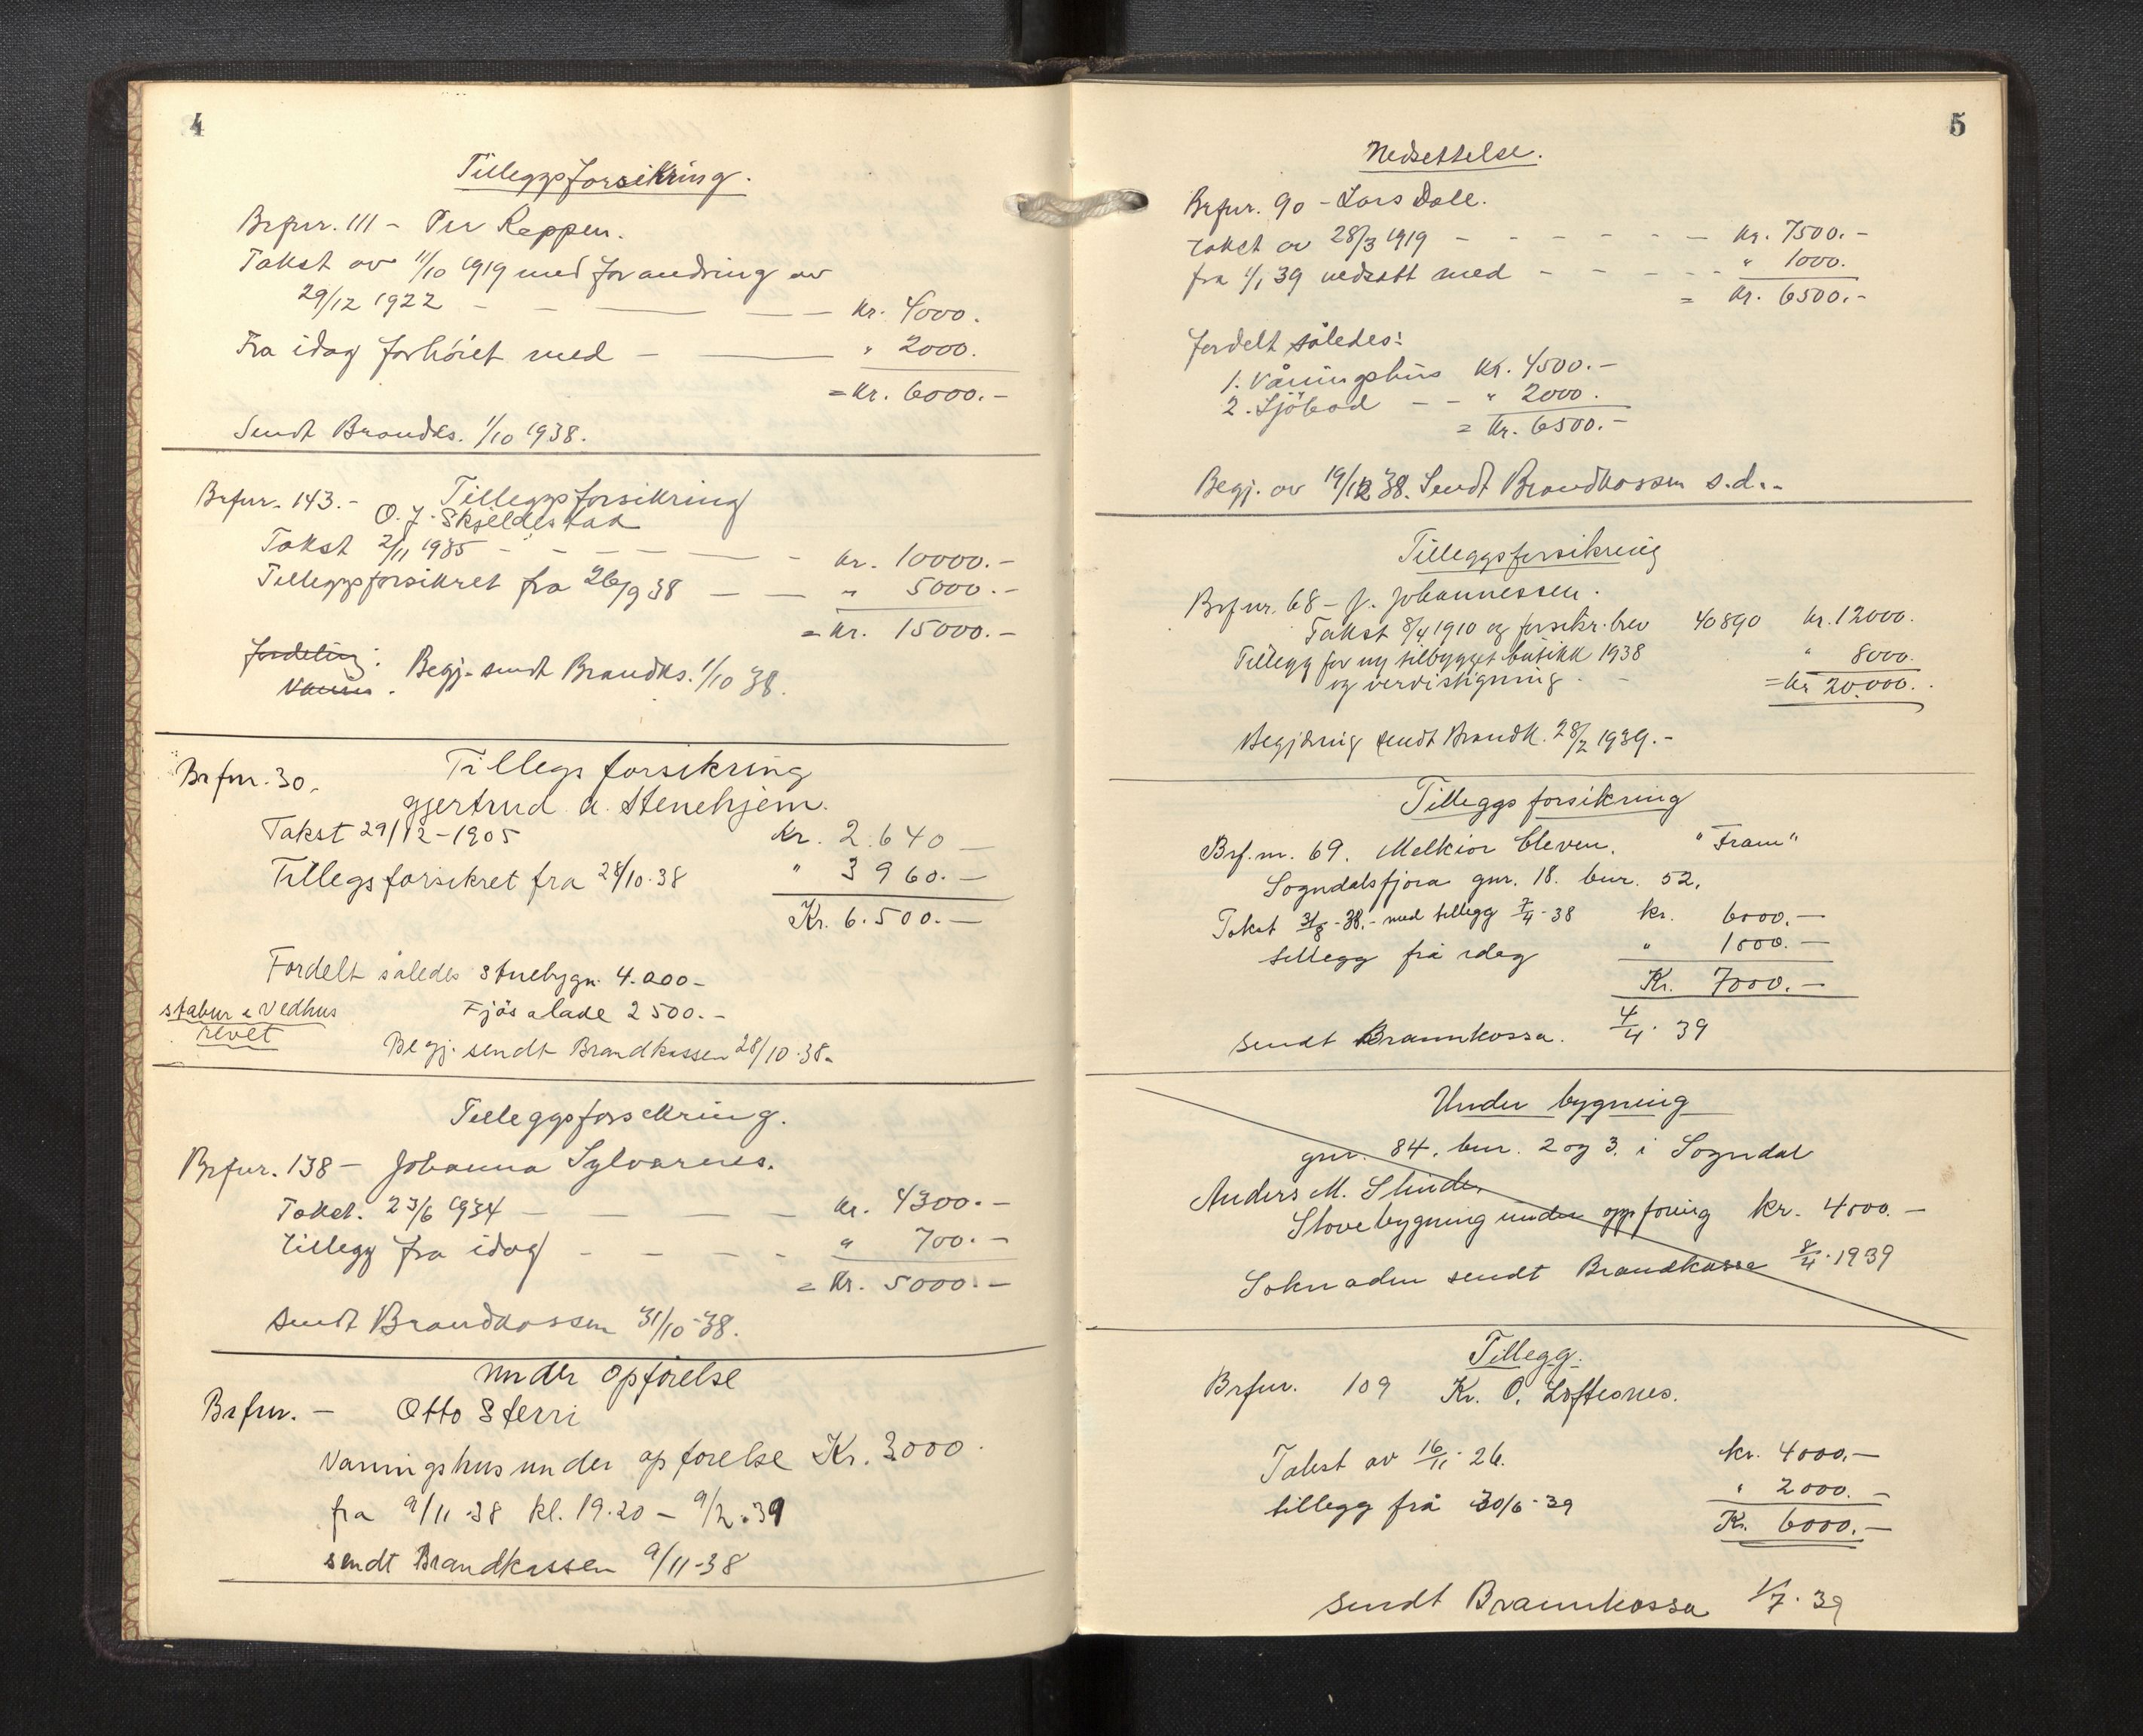 4
Tilleggsforsikring.
Brfnr. 111 - Per Reppen.
Takst av 11/10 1919 med forandring av
29/12 1922 - - — — — kr. 4000.
Fra idag forhöiet med - — " 2000.
= kr. 6000.-
Sendt Brandks. 1/10 1938.
Brfnr. 143.- Tilleggsforsikring
O. J. Skjeldestad
Takst 2/11 1935 - - - - — - kr. 10000.-
Tilleggsforsikret fra 26/9 38 — — " 5000.-
= kr. 15000.-
Fordeling:
Begj. sendt Brandks. 1/10 38.
Brfnr. 30. Tillegs forsikring
gjertrud a. Stenehjem.
Takst 29/12-1905 Kr. 2.640 —
Tillegsforsikret fra 28/10.38 " 3960.—
Kr. 6.500.—
Fordelt således stuebygn. 4.000-
stabur & Vedhus Fjös & lade 2500.-
revet
Begj. sendt Brandkassen 28/10.38.
Tilleggsforsikring.
Brfnr. 138 - Johanna Sylvarnes.
Takst. 23/6 1934 - — — — - kr. 4300.-
tillegg fra idag - - - - " 700.-
= kr. 5000.-
Sendt Brandkassen 31/10-38.
under opförelse
Brfnr. — Otto Sterri
Vanningshus under opförelse Kr. 3000.
fra 9/11-38 kl. 19.20 - 9/2.39
sendt Brandkassen 9/11-38
5
Nedsettelse.
Brfnr. 90 - Lars Dale.
takst av 28/3 1919 - - - - - - kr. 7500.-
fra 1/1 39 nedsatt med - - - - - " 1000.
= kr. 6500.-
fordelt således:
1. Våningshus kr. 4500.-
2. Sjöbod - - " 2000.
= kr. 6500.-
Begj. av 19/12 38. Sendt Brandkassen s.d.-
Tilleggsforsikring
Brfnr. 68 - J. Johannessen.
Takst 8/4 1910 og forsikr.brev 40890 kr. 12000.
Tillegg for ny tilbygget butikk 1938 " 8000.
og verdistigning - - = kr 20.000.
Begjæring sendt Brandk. 28/2 1939.-
Tilleggsforsikring
Brf.nr. 69. Melkior Cleven. "Fram"
Sogndalsfjøra gnr. 18. bnr. 52.
Takst 31/8-38.- med tillegg 7/4-38 kr. 6000.—
tillegg frå idag " 1000.—
Kr. 7000.—
sendt Brannkassa. 4/4. 39
Under bygning
gnr. 84. bnr. 2 og 3. i Sogndal
Anders M. Slinde.
Stovebygning under oppföring kr. 4000.-
Soknaden sendt Brandkassa 8/4.1939
Tillegg.
Brfnr. 109 Kr. O. Loftesnes.
Takst av 16/11. 26. kr. 4000.-
tillegg frå 30/6-39 " 2000.-
Kr. 6000.-
sendt Brannkassa 1/7. 39